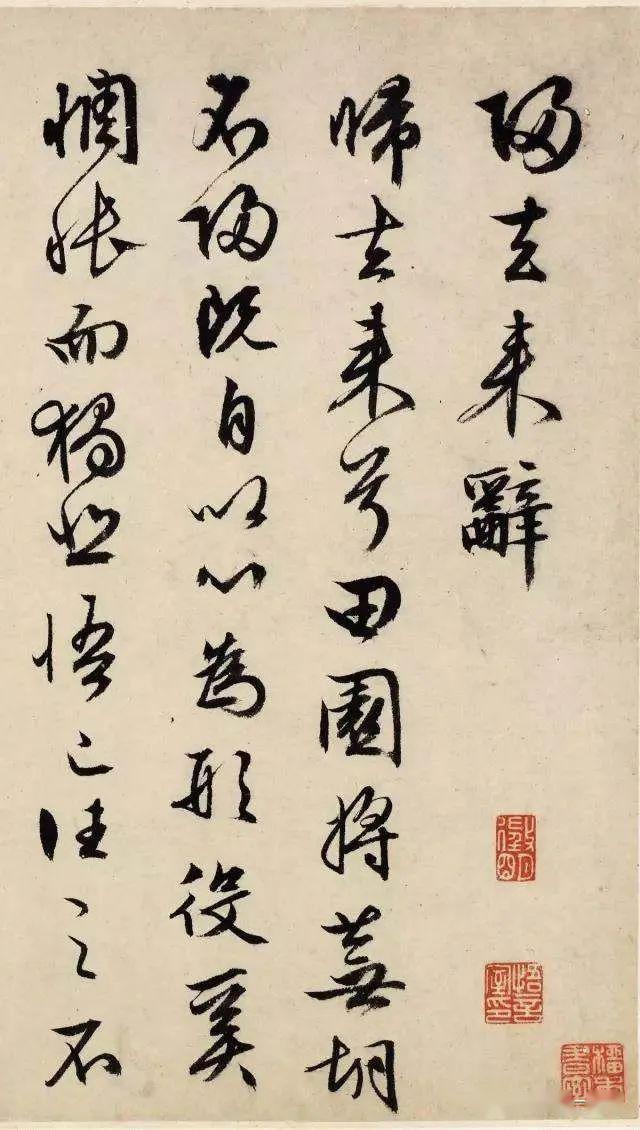 歸去来辭
歸去来兮田園將蕪胡
不歸既自以心為形役奚
惆悵而獨悲悟已往之不